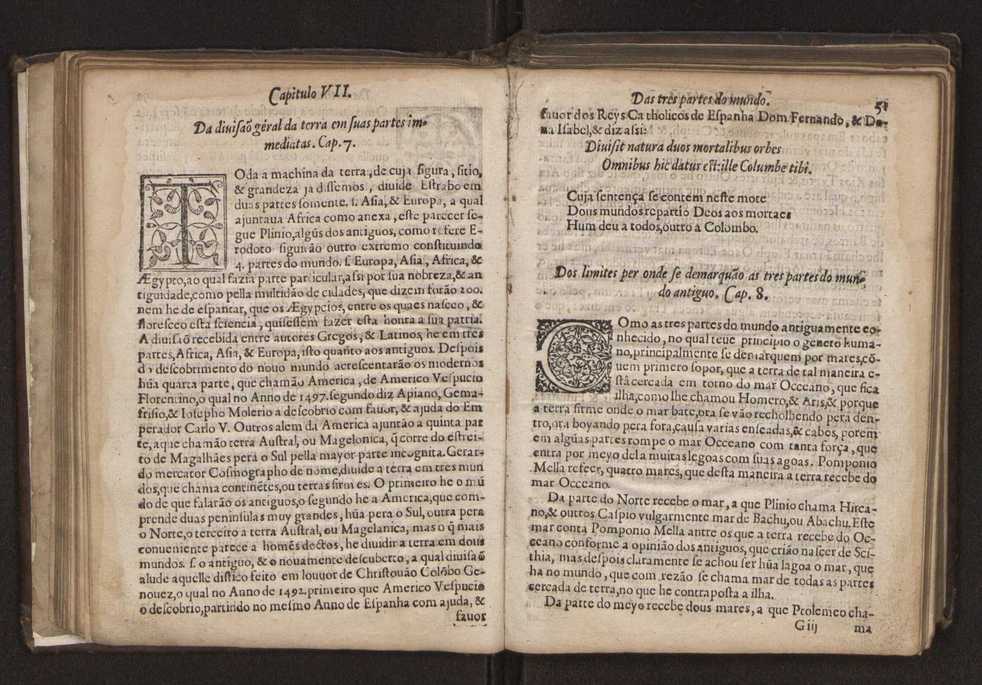 Capitulo VII.
Da diuisaõ géral da terra em suas partes im-
mediatas. Cap. 7.
TOda a machina da terra, de cuja figura, sitio,
& grandeza ja dissemos, diuide Estrabo em
duas partes somente. s. Asia, & Europa, a qual
ajuntaua Africa como anexa, este parecer se-
gue Plinio, algũs dos antiguos, como refere E-
rodoto siguirão outro extremo constituindo
4. partes do mundo. s. Europa, Asia, Africa, &
Ægypto, ao qual fazia parte particular, assi por sua nobreza, & an
tiguidade, como pella multidão de cidades, que dizem forão 200.
nem he de espantar, que os Ægypcios, entre os quaes nasceo, &
floresceo esta sciencia, quisessem fazer esta honra a sua patria.
A diuisaõ recebida entre autores Gregos, & Latinos, he em tres
partes, Africa, Asia, & Europa, isto quanto aos antiguos. Despois
do descobrimento do nouo mundo acrescentarão os modernos
hũa quarta parte, que chamão America, de Americo Vespucio
Florentino, o qual no Anno de 1497. segundo diz Apiano, Gema-
frisio, & Iosepho Molerio a descobrio com fauor, & ajuda do Em
perador Carlo V. Outros alem da America ajuntão a quinta par
te, a que chamão terra Austral, ou Magelonica, q̃ corre do estrei-
to de Magalhães pera o Sul pella mayor parte incognita. Gerar-
do mercator Cosmographo de nome, diuide a terra em tres mun
dos, que chama continẽtes, ou terras firmes. O primeiro he o mũ
do de que falarão os antiguos, o segundo he a America, que com-
prende duas peninsulas muy grandes, hũa pera o Sul, outra pera
o Norte, o terceiro a terra Austral, ou Magelanica, mas o q̃ mais
conueniente parece a homẽs doctos, he diuidir a terra em dous
mundos. s. o antiguo, & o nouamente descuberto, a qual diuisaõ
alude aquelle distico feito em louuor de Christouão Colõbo Ge-
nouez, o qual no Anno de 1492. primeiro que Americo Vespucio
o descobrio, partindo no mesmo Anno de Espanha com ajuda, &
fauor
Das tres partes do mundo.
51
fauor dos Reys Catholicos de Espanha Dom Fernando, & Do-
na Isabel, & diz assi:
Diuisit natura duos mortalibus orbes
Omnibus hic datus est: ille Columbe tibi.
Cuja sentença se contem neste mote
Dous mundos repartio Deos aos mortaes
Hum deu a todos, outro a Colombo.
Dos limites per onde se demarquão as tres partes do mun-
do antiguo. Cap. 8.
COmo as tres partes do mundo antiguamente co-
nhecido, no qual teue principio o genero huma-
no, principalmente se demarquem por mares, cõ-
uem primero sopor, que a terra de tal maneira e-
stá cercada em torno do mar Occeano, que fica
ilha, como lhe chamou Homero, & Aris, & porque
a terra firme onde o mar bate, ora se vão recholhendo pera den-
tro, ora boyando pera fora, causa varias enseadas, & cabos, porem
em algũas partes rompe o mar Occeano com tanta força, que
entra por meyo dela muitas legoas com suas agoas. Pomponio
Mella refeer, quatro mares, que desta maneira a terra recebe do
mar Occeano.
Da parte do Norte recebe o mar, a que Plinio chama Hirca-
no, & outros Caspio vulgarmente mar de Bachu, ou Abachu. Este
mar conta Pomponio Mella antre os que a terra recebe do Oc-
ceano conforme a opinião dos antiguos, que crião nascer de Sci-
thia, mas despois claramente se achou ser hũa lagoa o mar, que
ha no mundo, que com rezão se chama mar de todas as partes
cercada de terra, no que he contraposta a ilha.
Da parte do meyo recebe dous mares, a que Ptolemeo cha-
G iij
ma